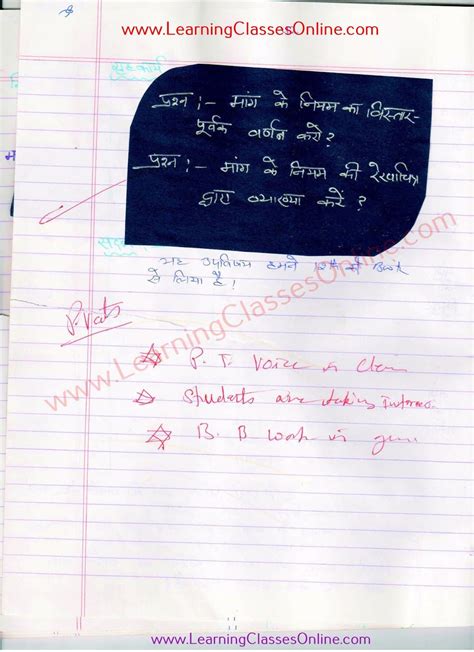 www.LearningClassesOnline.com
गृहकार्य
प्रश्न :- मांग के नियम का विस्तार-
पूर्वक वर्णन करो?
प्रश्न :- मांग के नियम की रेखाचित्र
द्वारा व्याख्या करें?
यह उपविषय हमने की Book
से लिया है!
www.LearningClassesOnline.com
P. T. Voice is clear
Students are taking
B. B work is
www.LearningClassesOnline.com